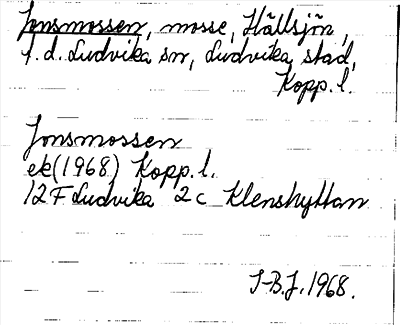 Jonsmossen, mosse, Hällsjön,
f.d. Ludvika sn, Ludvika stad,
Kopp. l.
Jonsmossen
ek (1968) Kopp. l.
12 F Ludvika 2 c Klenshyttan
S-B.J. 1968.